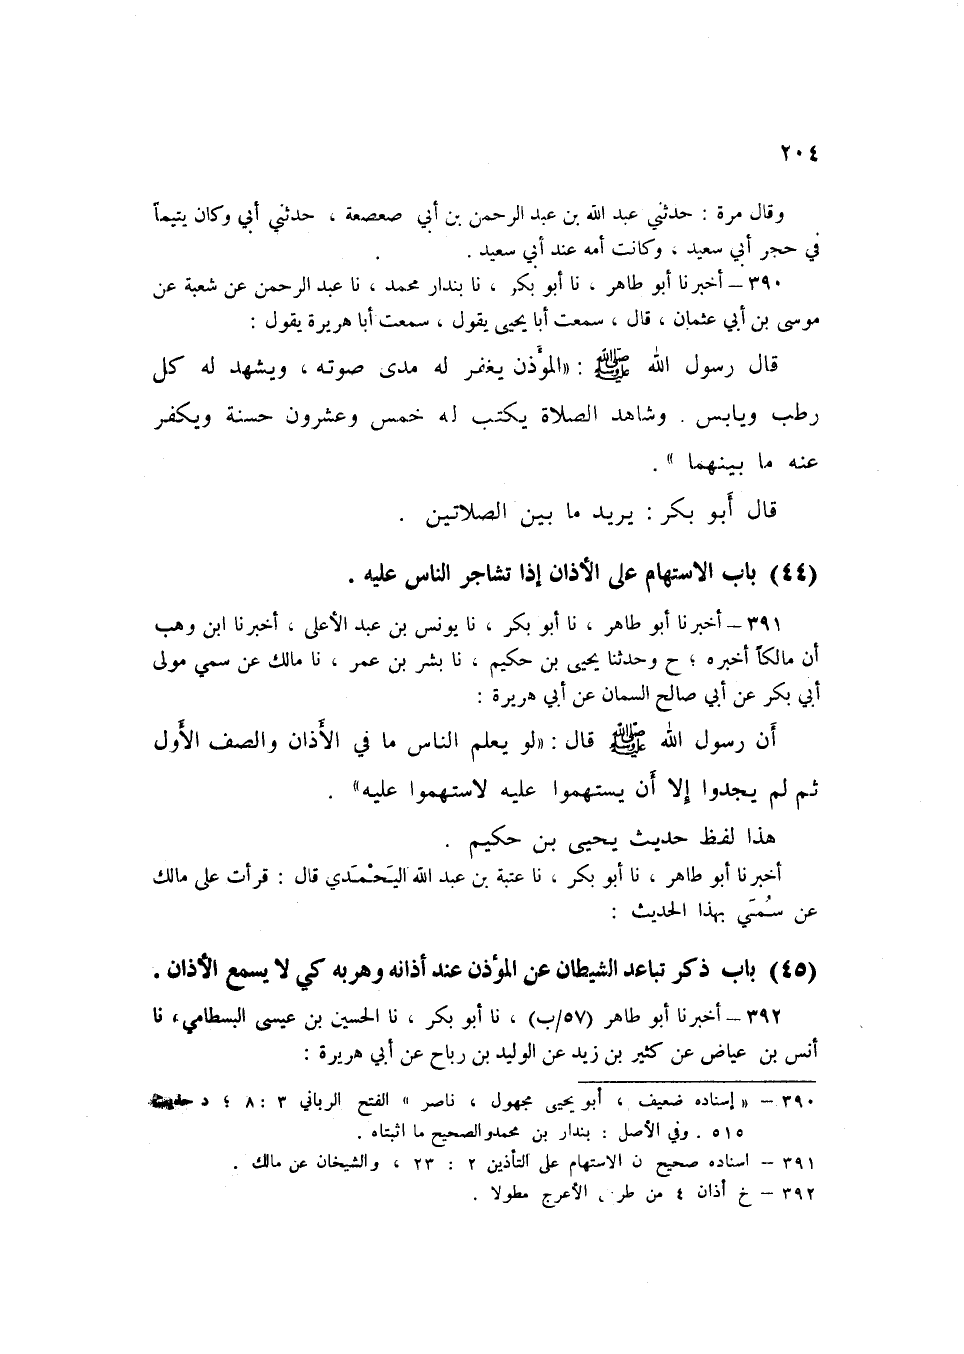 ٢٠٤
وقال مرة : حدثني عبد الله بن عبد الرحمن بن أبي صعصعة ، حدثني أبي وكان يتيماً
في حجر أبي سعيد ، وكانت أمه عند أبي سعيد .
٣٩٠ – أخبرنا أبو طاهر ، نا أبو بكر ، نا بندار محمد ، نا عبد الرحمن عن شعبة عن
موسى بن أبي عثمان ، قال ، سمعت أبا يحيى يقول ، سمعت أبا هريرة يقول :
قال رسول الله ﷺ : «المؤذن يغفر له مدى صوته ، ويشهد له كل
رطب ويابس . وشاهد الصلاة يكتب له خمس وعشرون حسنة ويكفر
عنه ما بينهما » .
قال أبو بكر : يريد ما بين الصلاتين .
(٤٤) باب الاستهام على الأذان إذا تشاجر الناس عليه .
٣٩١ – أخبرنا أبو طاهر ، نا أبو بكر ، نا يونس بن عبد الأعلى ، أخبرنا ابن وهب
أن مالكاً أخبره ؛ ح وحدثنا يحيى بن حكيم ، نا بشر بن عمر ، نا مالك عن سمي مولى
أبي بكر عن أبي صالح السمان عن أبي هريرة :
أن رسول الله ﷺ قال : «لو يعلم الناس ما في الأذان والصف الأول
ثم لم يجدوا إلا أن يستهموا عليه لاستهموا عليه» .
هذا لفظ حديث يحيى بن حكيم .
أخبرنا أبو طاهر ، نا أبو بكر ، نا عتبة بن عبد الله اليَحْمَدي قال : قرأت على مالك
عن سُمَي بهذا الحديث :
(٤٥) باب ذكر تباعد الشيطان عن المؤذن عند أذانه وهربه كي لا يسمع الأذان .
٣٩٢ – أخبرنا أبو طاهر (٥٧/ب) ، نا أبو بكر ، نا الحسين بن عيسى البسطامي ، نا
أنس بن عياض عن كثير بن زيد عن الوليد بن رباح عن أبي هريرة :
٣٩٠ – « إسناده ضعيف ، أبو يحيى مجهول ، ناصر » الفتح الرباني ٣ : ٨ ؛ د حديث
٥١٥ . وفي الأصل : بندار بن محمدوالصحيح ما اثبتاه .
٣٩١ – اسناده صحيح ن الاستهام على التأذين ٢ : ٢٣ ، والشيخان عن مالك .
٣٩٢ – خ أذان ٤ من طر الأعرج مطولا .